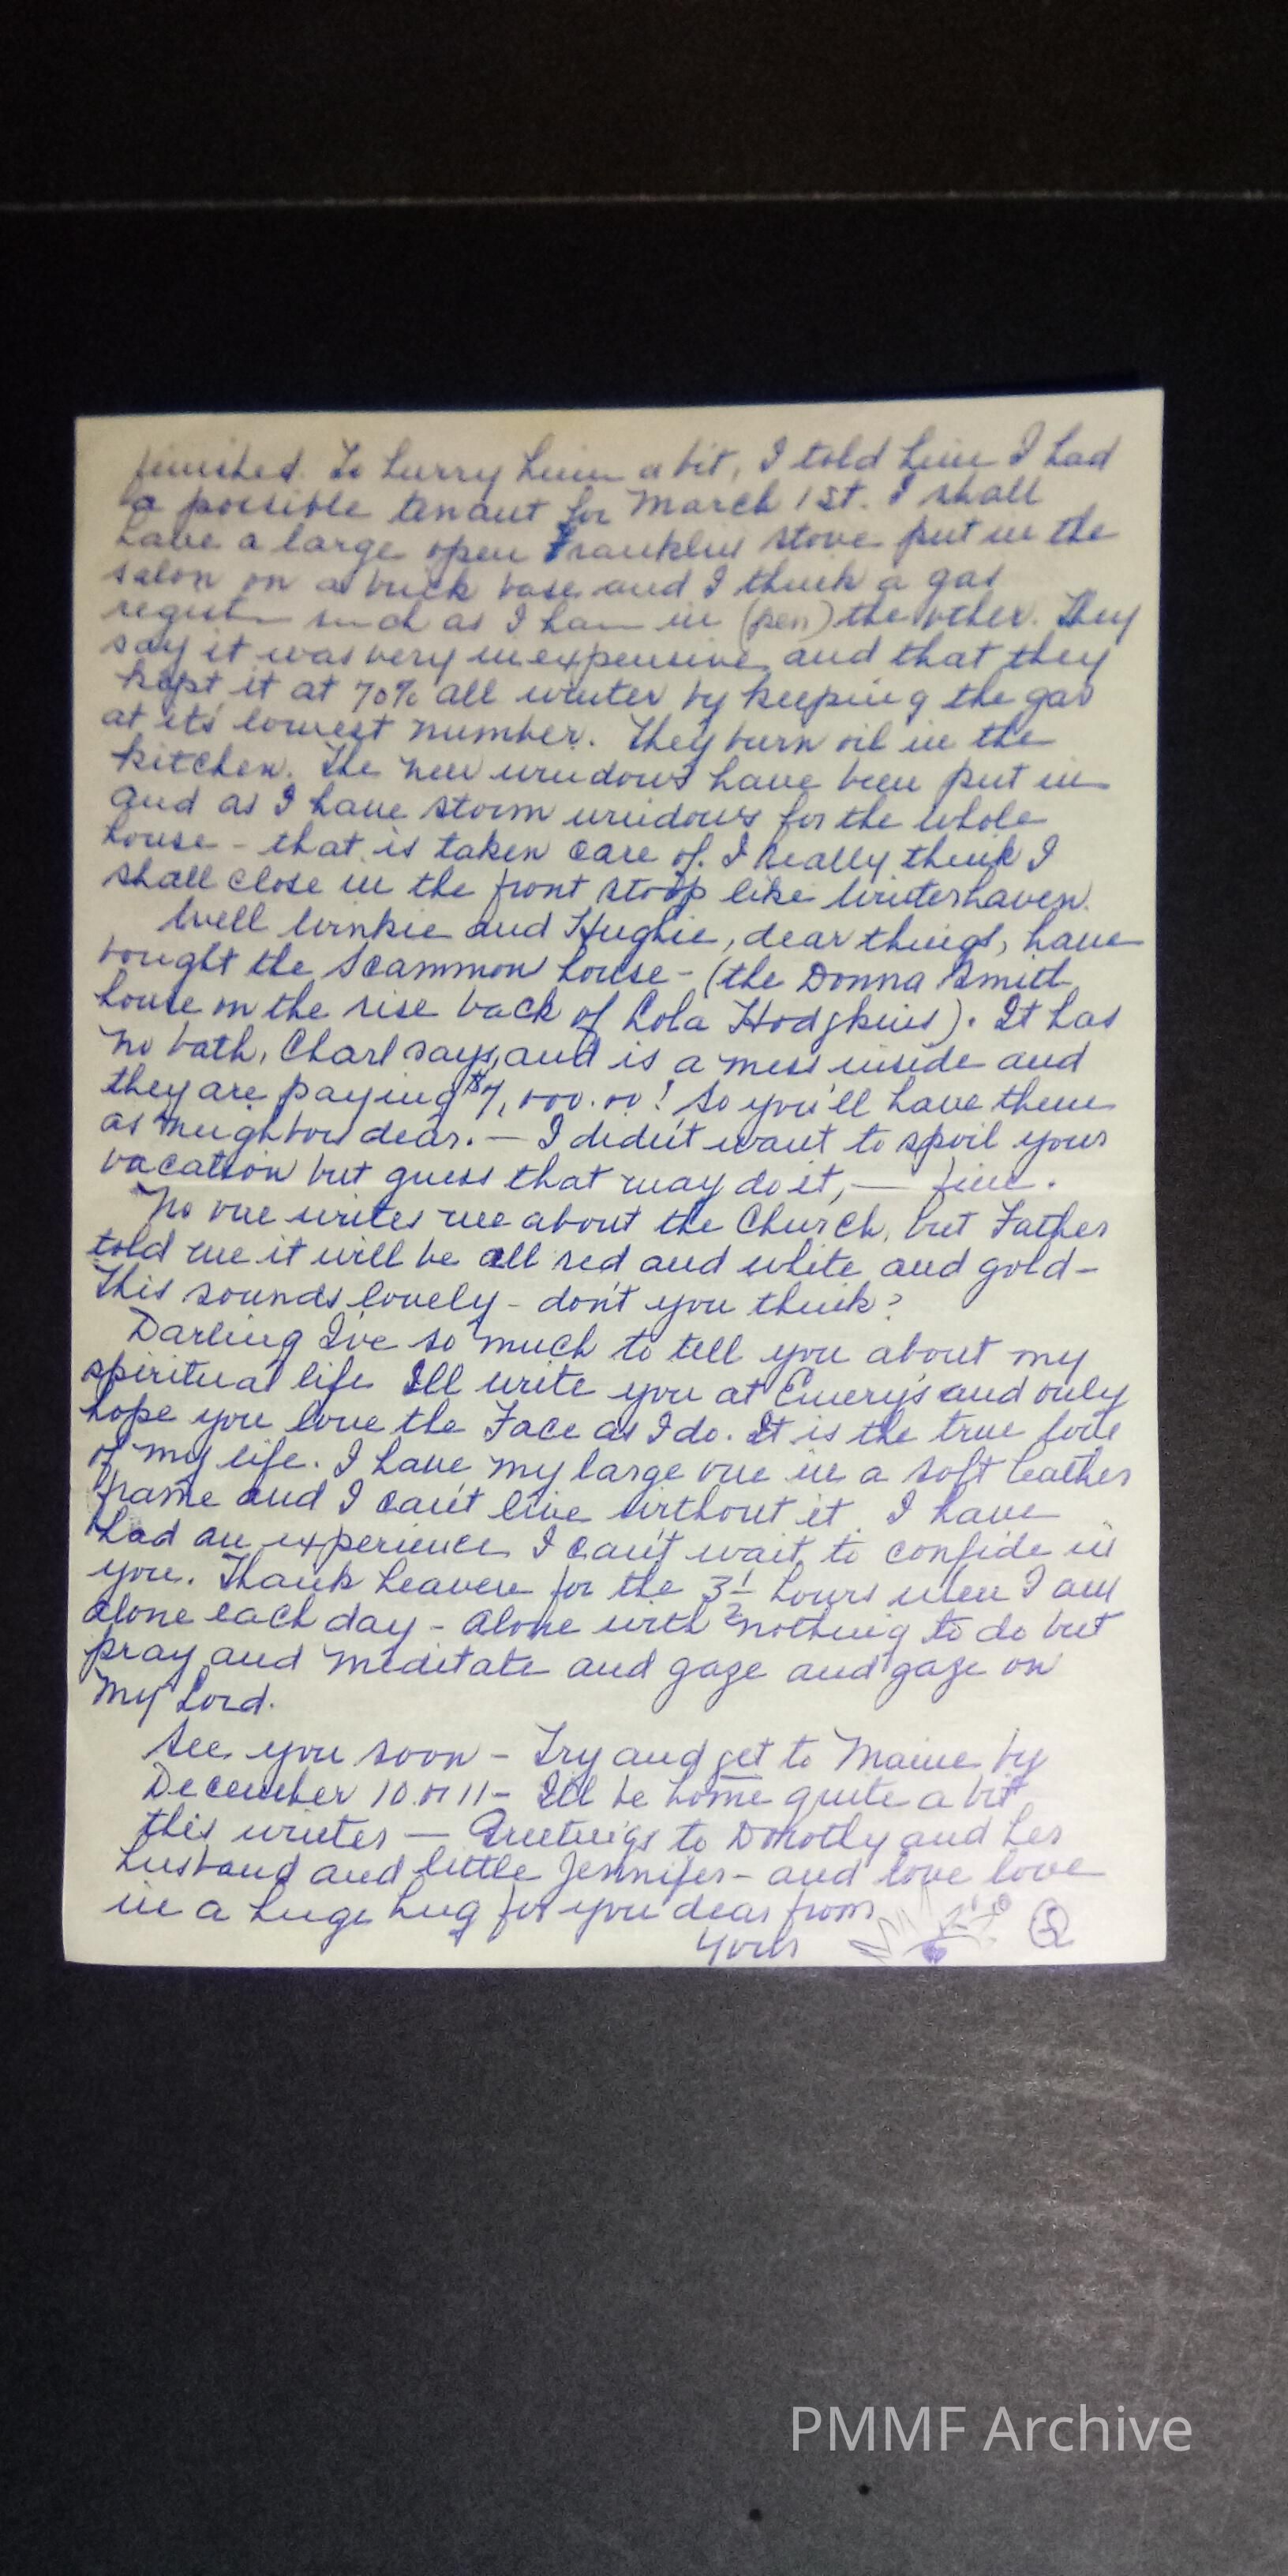 finished. To hurry him a bit, I told him I had
a possible tenant for March 1st. I shall
have a large open Franklin stove put in the
salon on a brick base and I think a gas
such as I have in (pen) the other. They
say it was very inexpensive and that they
kept it at 70% all winter by keeping the gas
at its lowest number. They burn oil in the
kitchen. The new windows have been put in
and as I have storm windows for the whole
house - that is taken care of. I really think I
shall close in the front stoop like Winterhaven.
Well Winkie and Hughie, dear things, have
bought the Scammon house - (the Donna Smith
house on the rise back of Lola Hodgkins). It has
no bath, Charl says, and is a mess inside and
they are paying $7,000.00! So you'll have them
as neighbors dear. — I didn't want to spoil your
vacation but guess that may do it, —
No one writes me about the Church, but Father
told me it will be all red and white and gold -
This sounds lovely - don't you think?
Darling I've so much to tell you about my
spiritual life I'll write you at Emery's and only
hope you love the Face as I do. It is the true love
of my life. I have my large one in a soft leather
frame and I can't live without it. I have
had an experience I can't wait to confide in
you. Thank heaven for the 3½ hours when I am
alone each day - alone with nothing to do but
pray and meditate and gaze and gaze on
My Lord.
See you soon - Try and get to Maine by
December 10 or 11 - I'll be home quite a bit
this winter — Greetings to Dorothy and her
husband and little Jennifer - and love love
in a huge hug for you dear from
Yours
PMMF Archive